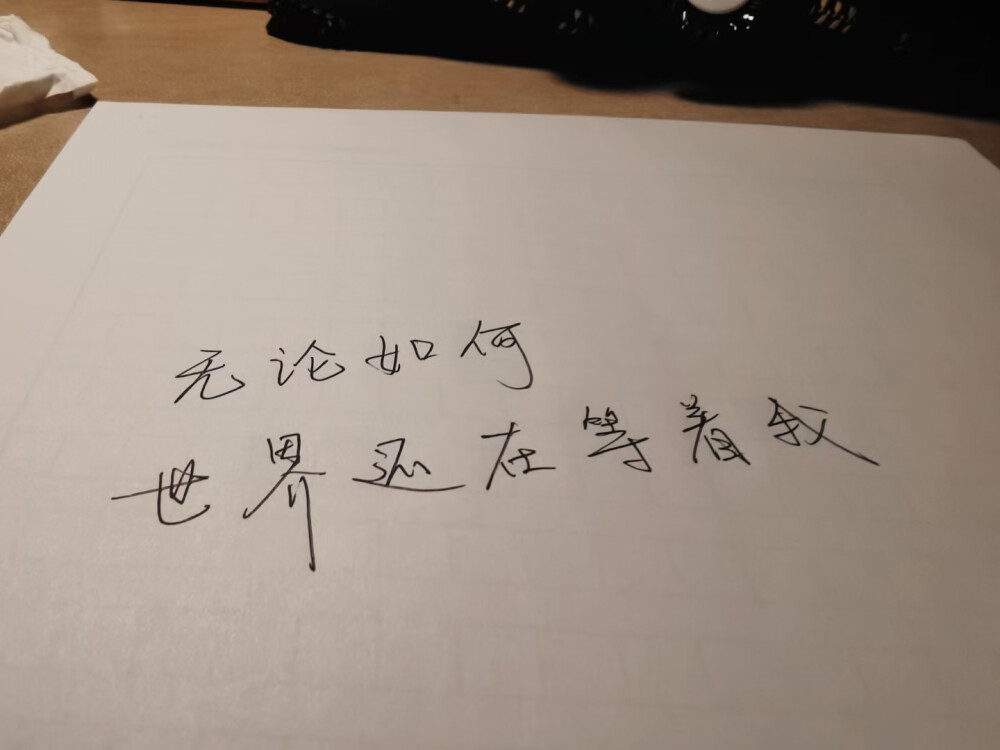 无论如何
世界还在等着我